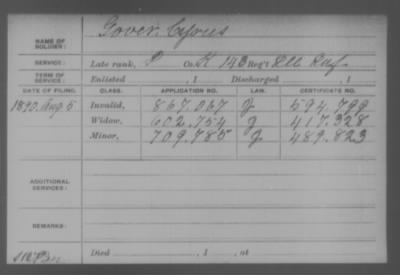 Goven Cyrus
NAME OF SOLDIER:
SERVICE: Late rank, P Co. K 143 Reg't Ills Inf
TERM OF SERVICE: Enlisted , 1 Discharged , 1
DATE OF FILING. CLASS. APPLICATION NO. LAW. CERTIFICATE NO.
1890. Aug 5 Invalid, 867.067 J 594.799
Widow, 602.754 J 417.328
Minor, 709.785 J 489.823
ADDITIONAL SERVICES:
REMARKS:
Died , 1 , at